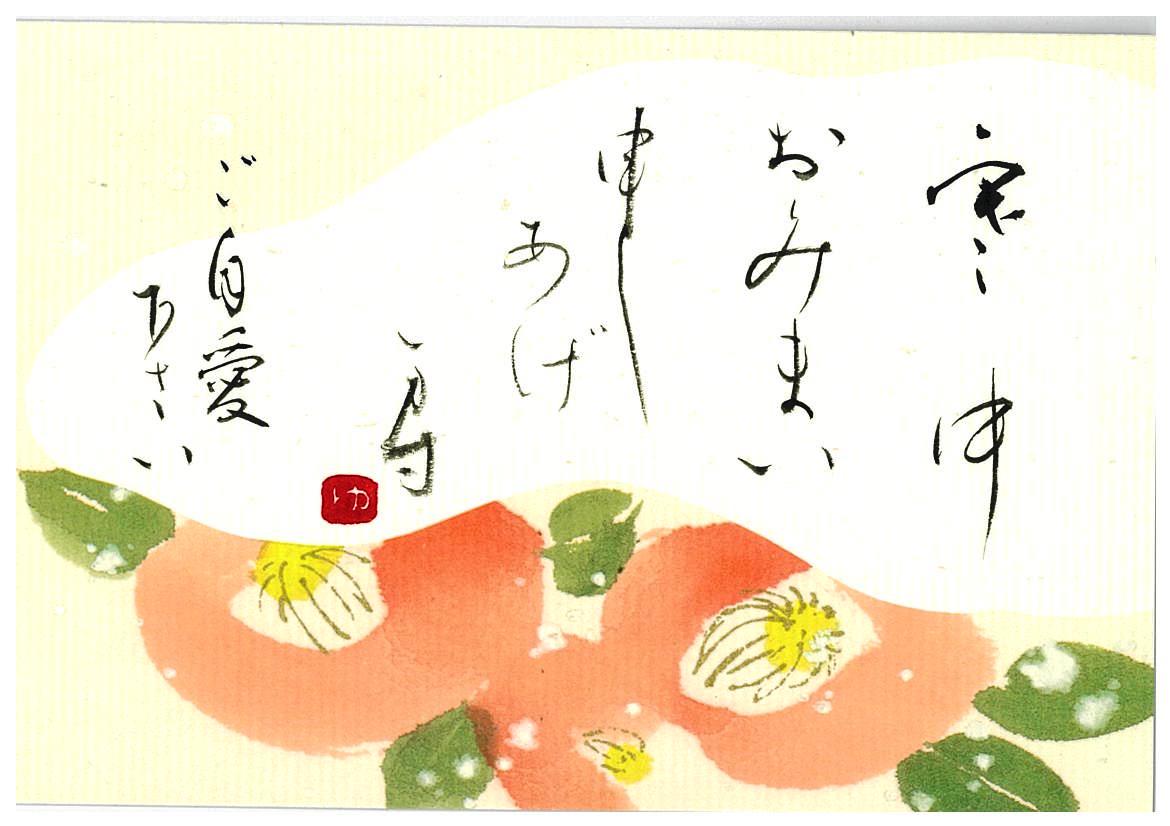 寒中
おみまい
申し
あげ
ます
ご自愛
下さい
ゆ